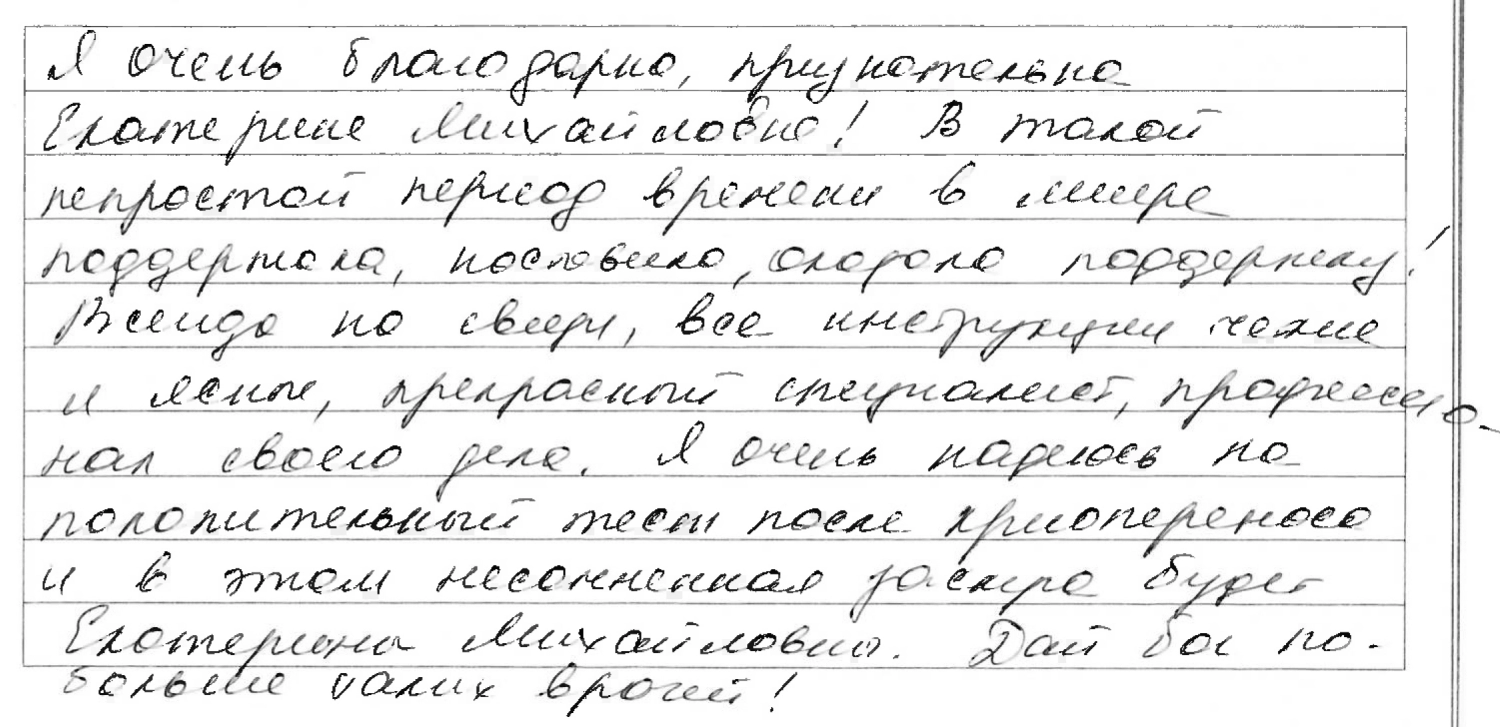 Я очень благодарна, признательна
Екатерине Михайловне! В такой
непростой период времени в мире
поддержала, наставила, оказала поддержку!
Всегда на связи, все инструкции четкие
и ясные, прекрасный специалист, профессио-
нал своего дела. Я очень надеюсь на
положительный тест после криопереноса
и в этом несомненная заслуга будет
Екатерины Михайловны. Дай бог по-
больше таких врачей!